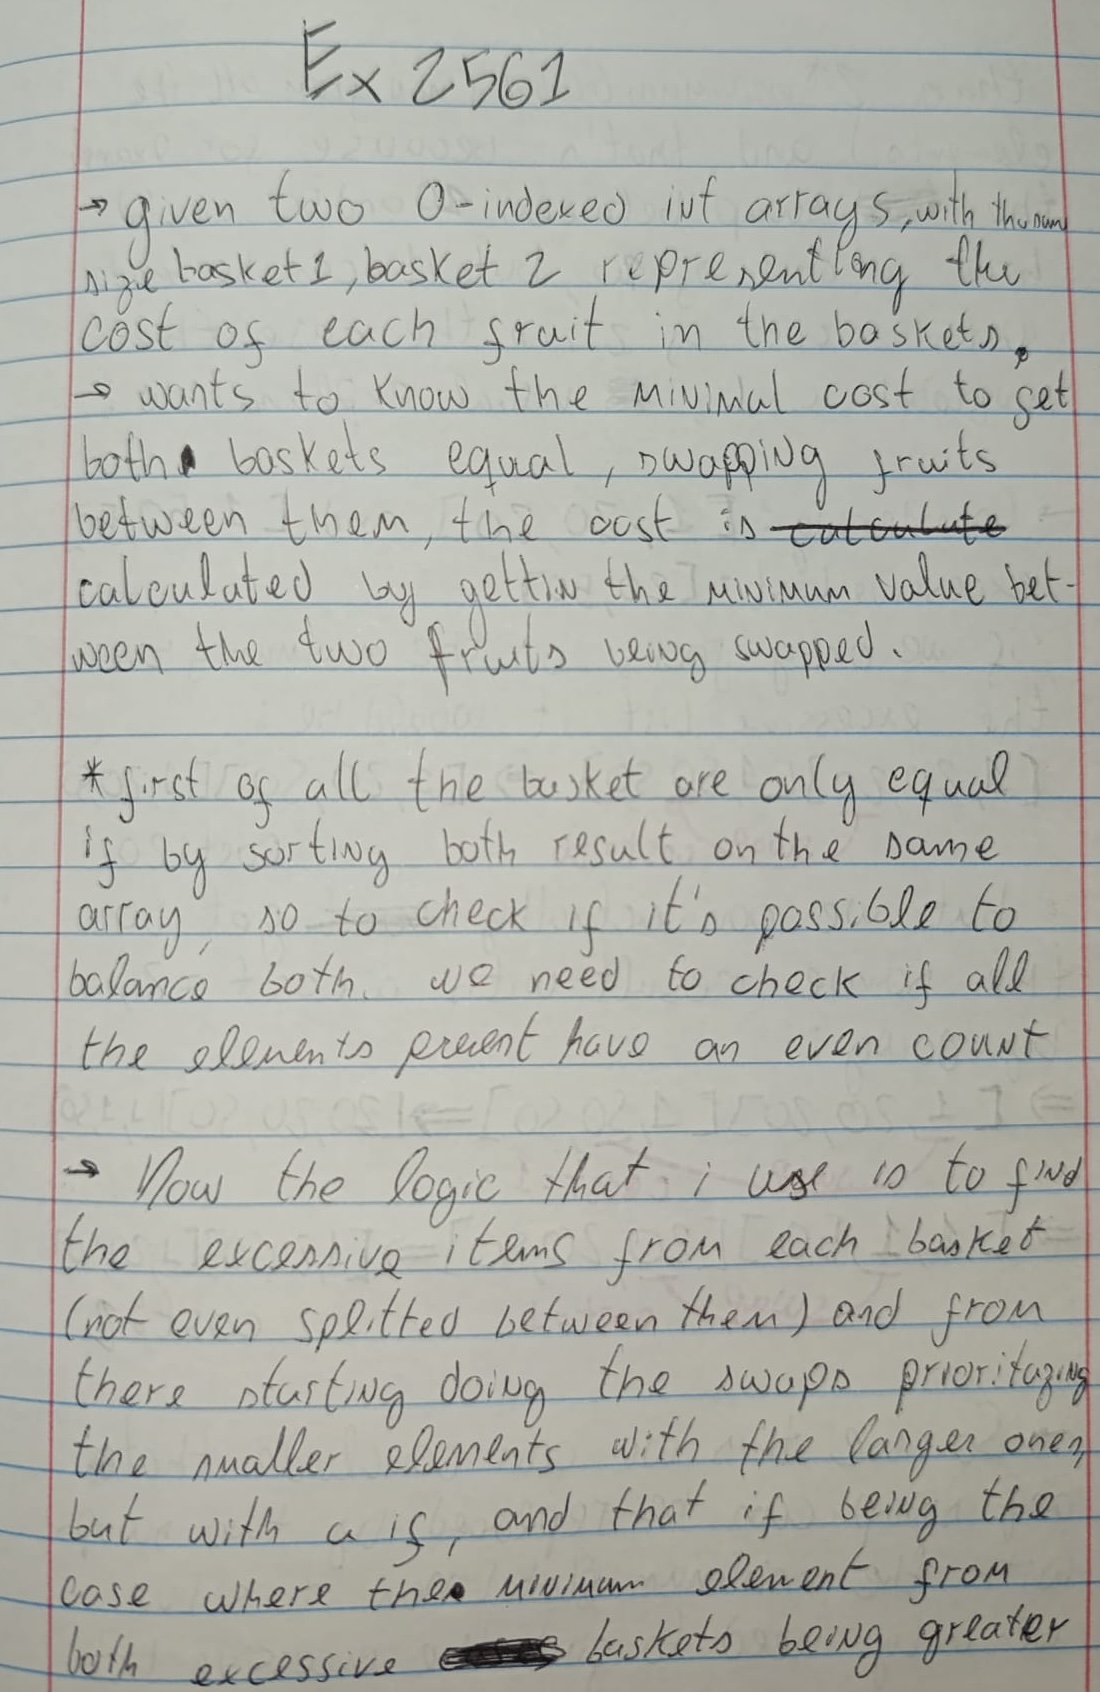 Ex 2561
→ given two 0-indexed int arrays, with the same
size basket1, basket 2 representing the
cost of each fruit in the baskets.
→ wants to know the minimal cost to get
both baskets equal, swapping fruits
between them, the cost is calculate
calculated by gettin the minimum value bet-
ween the two fruits being swapped.
* first of all the basket are only equal
if by sorting both result on the same
array, so to check if it's possible to
balance both. we need to check if all
the elements present have an even count
→ Now the logic that i use is to find
the excessive items from each basket
(not even splitted between them) and from
there starting doing the swaps prioritazing
the smaller elements with the larger ones,
but with a if, and that if being the
case where the minimum element from
both excessive baskets being greater